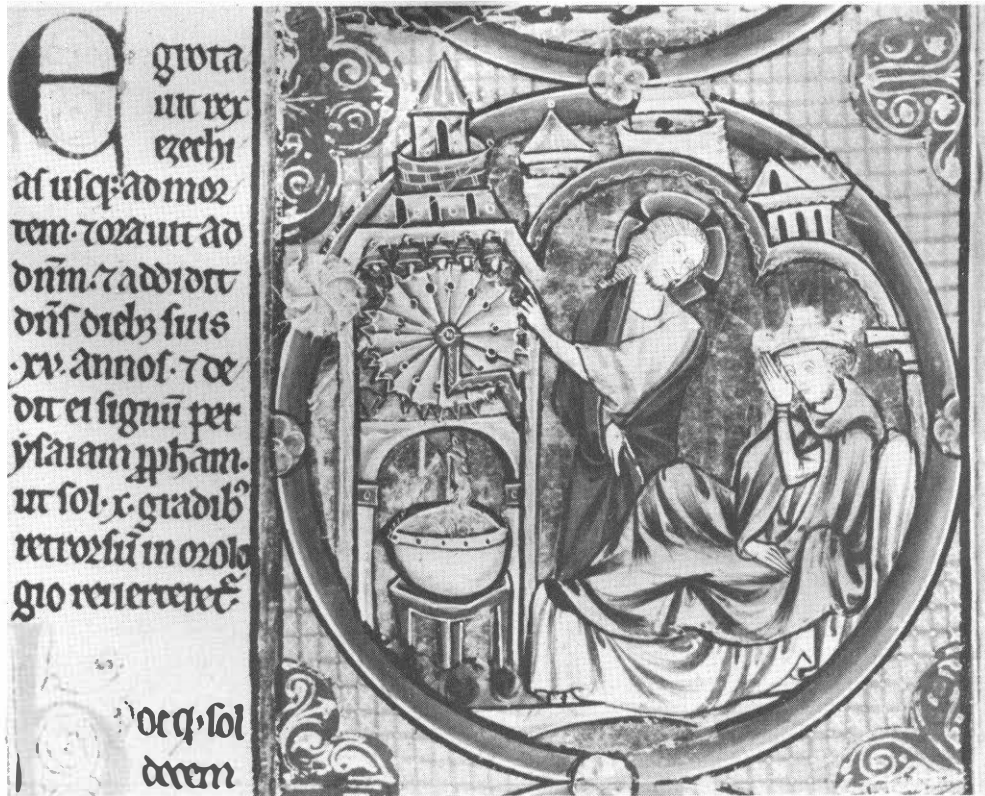 Egrota
uit rex
ezechi
as usq; ad mor
tem. ⁊ orauit ad
dnm̄. ⁊ addidit
dn̄s dieb; suis
.xv. annos. ⁊ de
dit ei signū per
ẏsaiam ꝓpham.
ut sol .x. gradib⁹
retrorsū in orolo
gio reuerteret᷑.
oc q. sol
decem